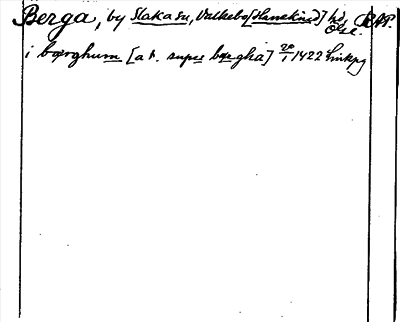 Berga, by Slaka sn, Valkebo [Hanekind] hd, Ög. RAP.
i bærghum [a t. super bærgha] 20/1 1422 Linkpg